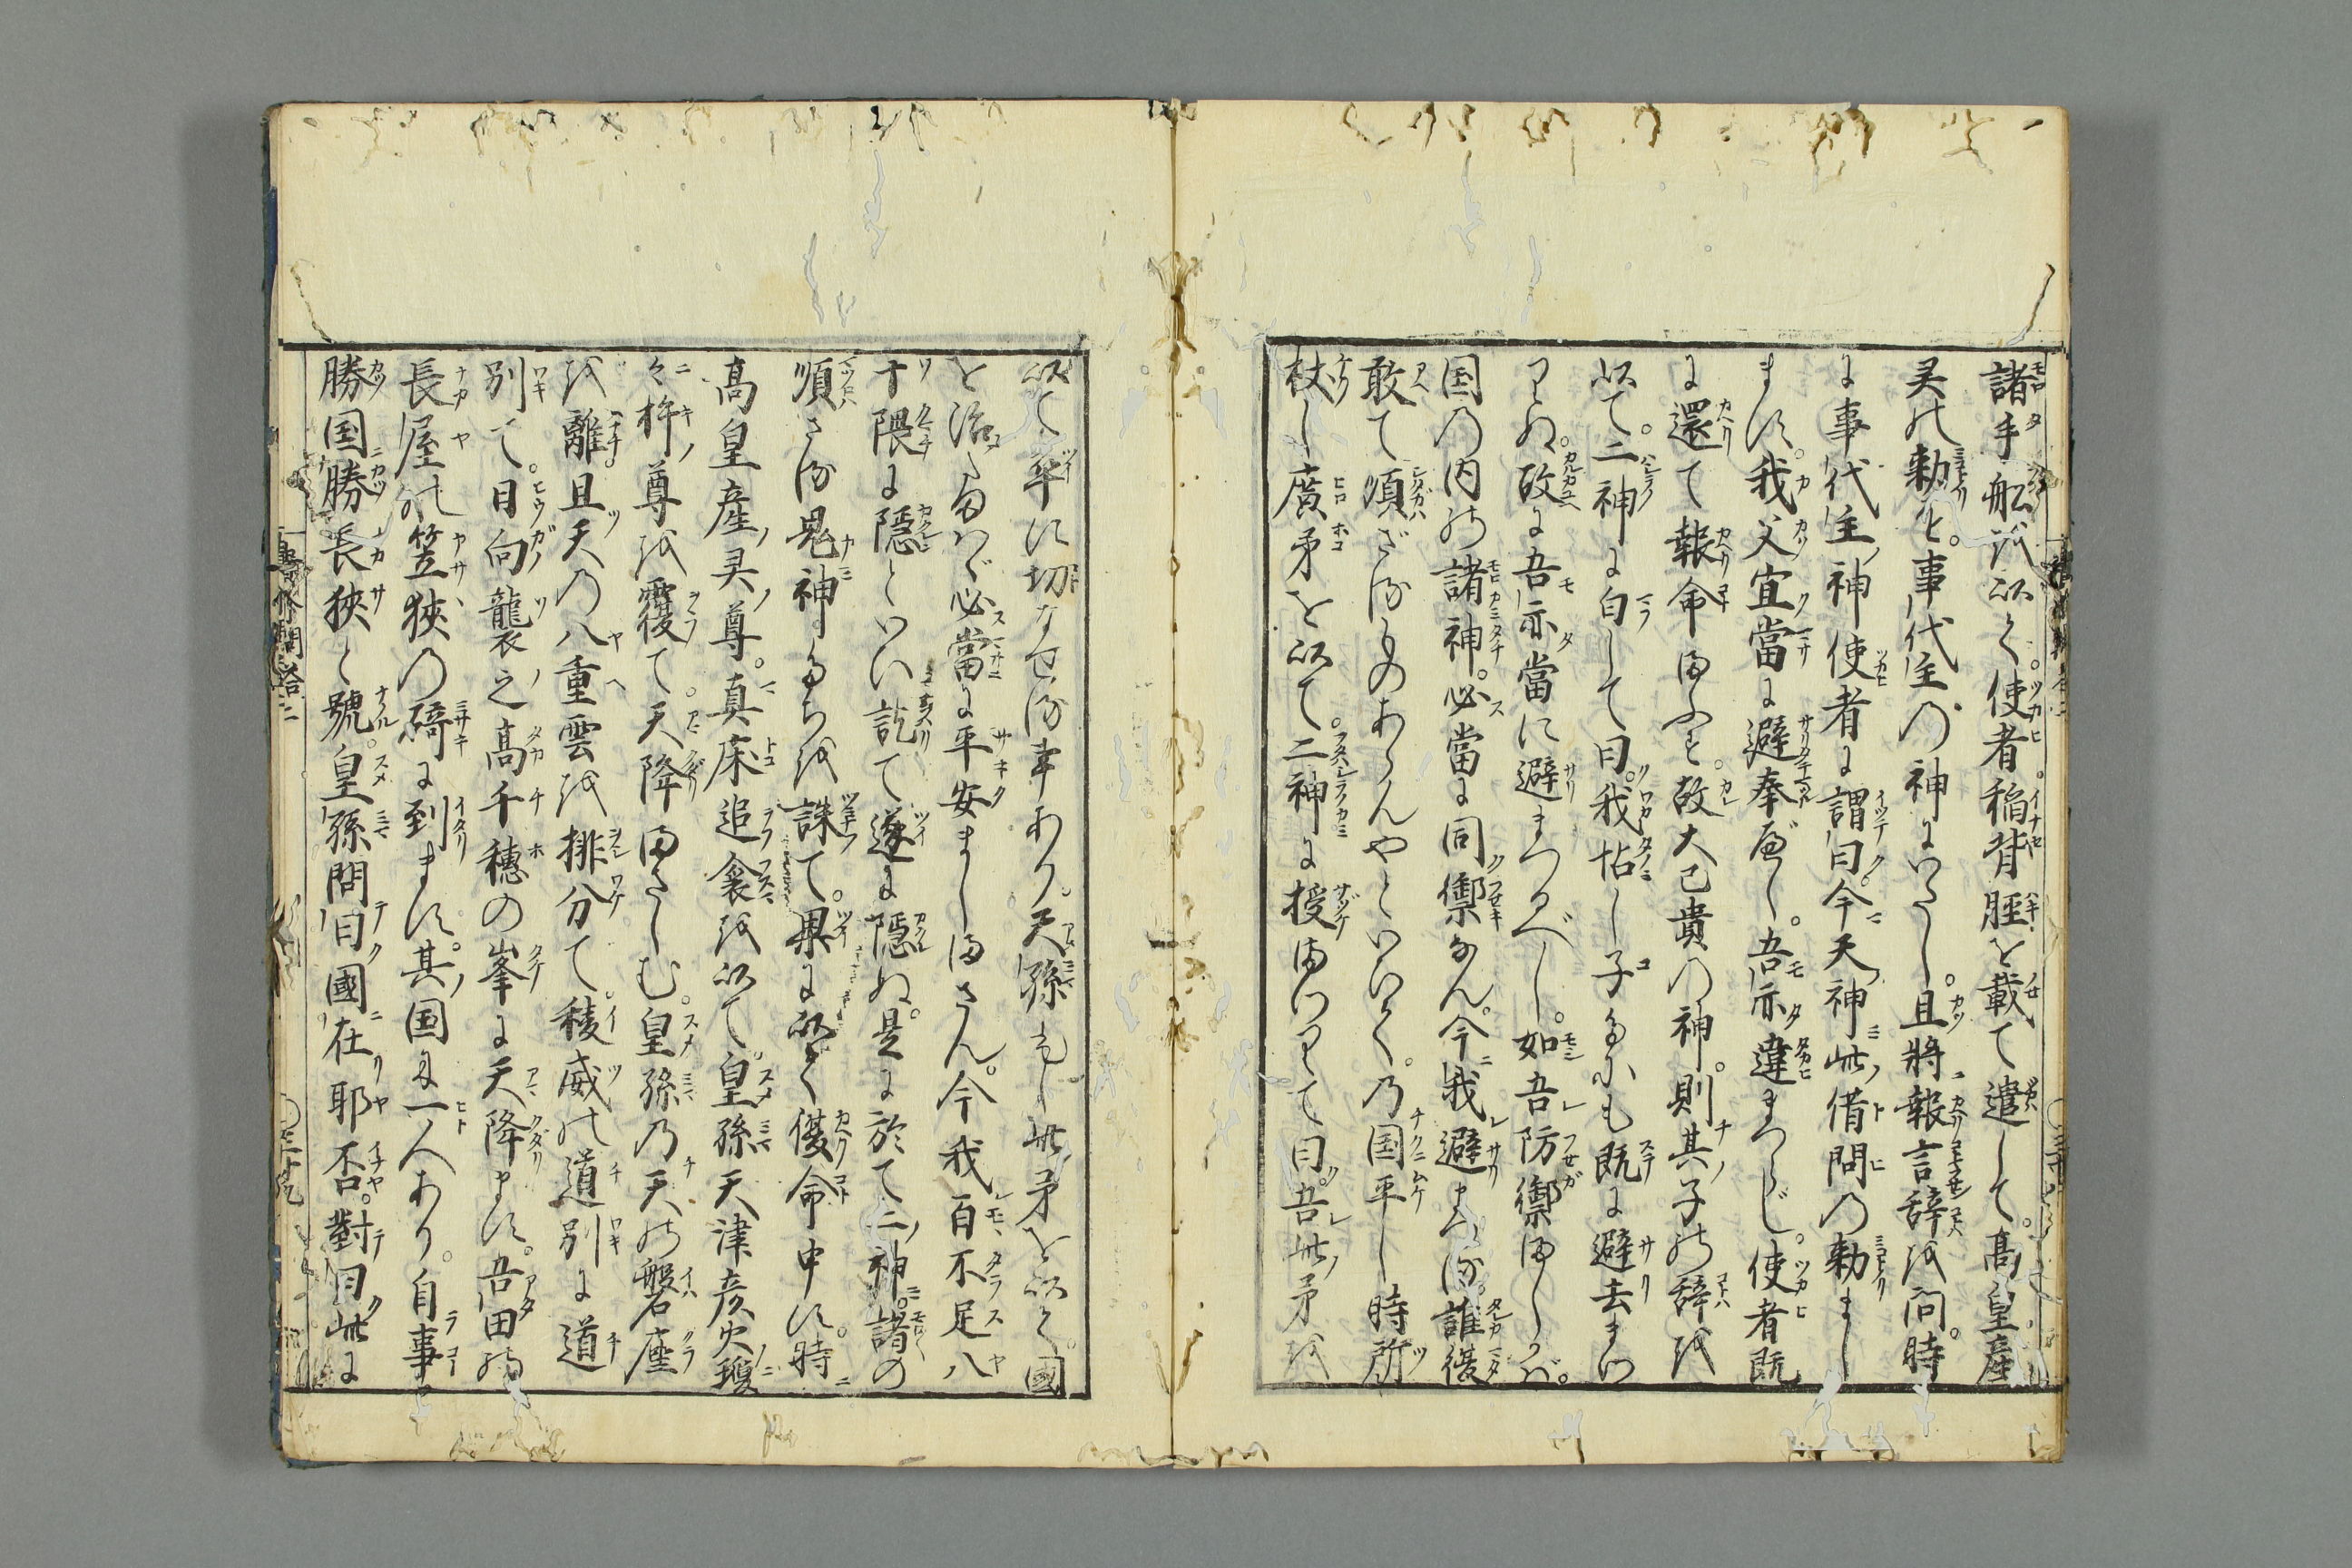 諸手船を以く。使者。稲背脛を載て遣して。高皇産
灵の勅を。事代主の神にいたし。且將報言辞を問。時
に事代主神使者に謂曰。今天神此借問の勅まし
ます。我父宜當に避奉べし。吾亦違まつらじ。使者既
に還て報命まふす。故大己貴の神。則其子の辞を
以て。二神に白して曰。我怙し子だにも既に避去まつ
りぬ。故に吾亦當に避まつるべし。如吾防禦ましかば。
国の内の諸神。必當に同禦なん。今我避まつる。誰復
敢て順ざるものあらんやといいて。乃国平し時所
杖し廣矛を以て。二神に授まつりて曰。吾此矛を
以て卒に功なせる事あり。天孫もし此矛を以て。國
を治たまはゞ必當に平安ましまさん。今我百不足八
十隈に隠といい訖て遂に隠ぬ。是に於て二神。諸の
順さる鬼神たちを誅て。果に以て復命申す。時
高皇産灵尊。真床追衾を以て。皇孫天津彦火瓊
々杵尊を覆て。天降まさしむ。皇孫乃天の磐座
を離。且天の八重雲を排分て。稜威の道別に道
別て。日向龍之高千穂の峯に天降ます。吾田の
長屋の笠狹の碕に到ます。其国に一人あり。自事
勝国勝長狹と號。皇孫問曰國在耶否。對曰此に